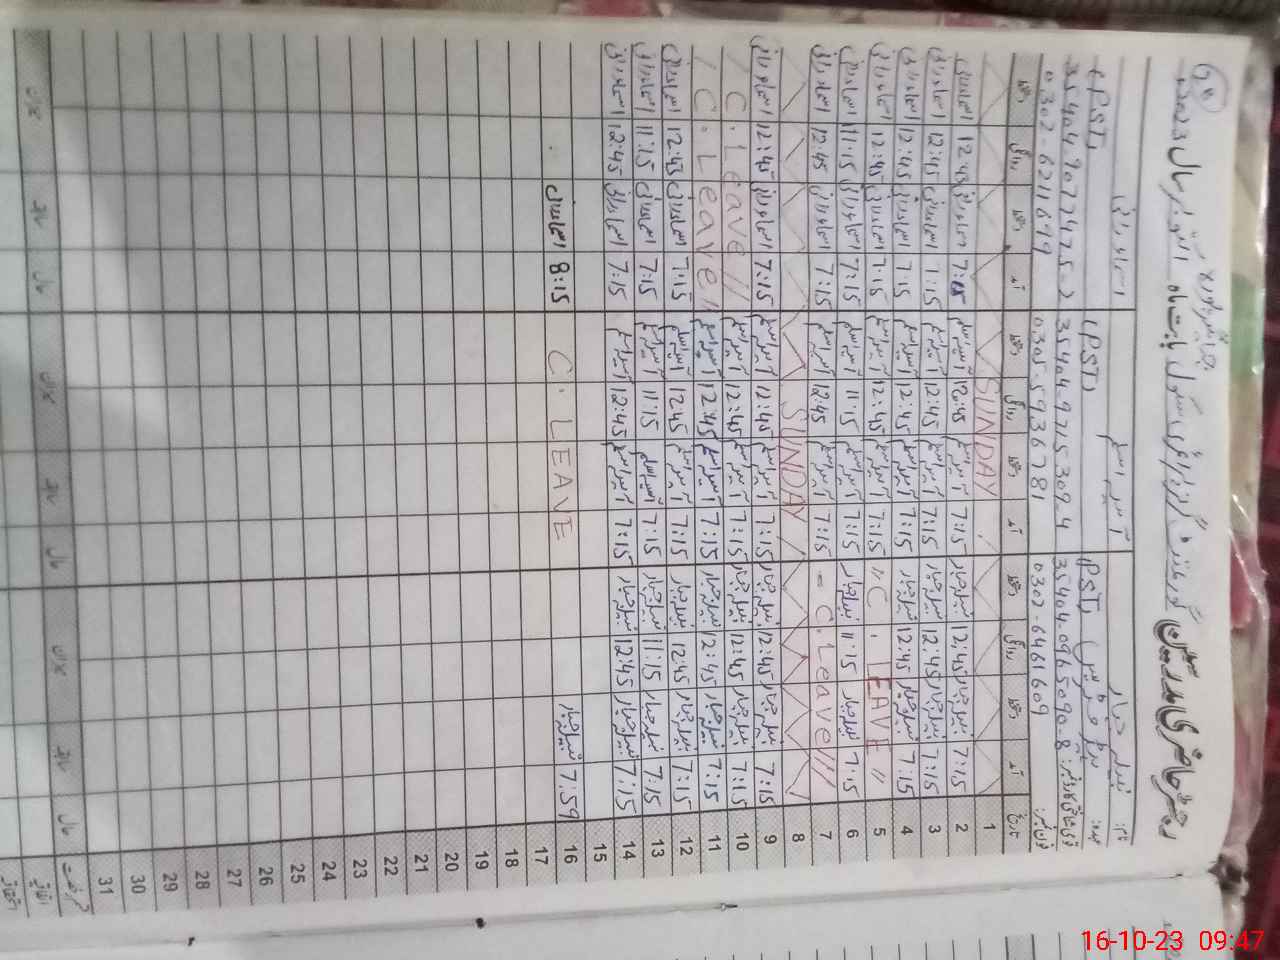 رجسٹر حاضری مدرسین گورنمنٹ گرلز پرائمری سکول بابت ماہ اکتوبر سال 2023ء
نام: نبیلہ جبار آسیہ اسلم
عہدہ: (PST) (PST) (PST)
قومی شناختی کارڈ نمبر: 35404-0965090-8 35404-9715309-4 35404-9077475-2
فون نمبر: 0302-6461609 0305-5936781 0302-6211699
تاریخ آمد دستخط روانگی دستخط آمد دستخط روانگی دستخط آمد دستخط روانگی دستخط
1 SUNDAY
2 7:15 نبیلہ جبار 12:45 نبیلہ جبار 7:15 آسیہ اسلم 12:45 آسیہ اسلم 7:15 12:45
3 7:15 نبیلہ جبار 12:45 نبیلہ جبار 7:15 آسیہ اسلم 12:45 آسیہ اسلم 7:15 12:45
4 7:15 نبیلہ جبار 12:45 نبیلہ جبار 7:15 آسیہ اسلم 12:45 آسیہ اسلم 7:15 12:45
5 "C. LEAVE" 7:15 آسیہ اسلم 12:45 آسیہ اسلم 7:15 12:45
6 7:15 نبیلہ جبار 11:15 نبیلہ جبار 7:15 آسیہ اسلم 11:15 آسیہ اسلم 7:15 11:15
7 C. Leave 7:15 آسیہ اسلم 12:45 آسیہ اسلم 7:15 12:45
8 SUNDAY
9 7:15 نبیلہ جبار 12:45 نبیلہ جبار 7:15 آسیہ اسلم 12:45 آسیہ اسلم 7:15 12:45
10 7:15 نبیلہ جبار 12:45 نبیلہ جبار 7:15 آسیہ اسلم 12:45 آسیہ اسلم C. Leave
11 7:15 نبیلہ جبار 12:45 نبیلہ جبار 7:15 آسیہ اسلم 12:45 آسیہ اسلم C. Leave
12 7:15 نبیلہ جبار 12:45 نبیلہ جبار 7:15 آسیہ اسلم 12:45 آسیہ اسلم 7:15 12:45
13 7:15 نبیلہ جبار 11:15 نبیلہ جبار 7:15 آسیہ اسلم 11:15 آسیہ اسلم 7:15 11:15
14 7:15 نبیلہ جبار 12:45 نبیلہ جبار 7:15 آسیہ اسلم 12:45 آسیہ اسلم 7:15 12:45
15
16 7:59 نبیلہ جبار C. LEAVE 8:15
17
18
19
20
21
22
23
24
25
26
27
28
29
30
31
رخصت حال سابقہ میزان حال سابقہ میزان حال سابقہ میزان
اتفاقیہ
استحقاقیہ
16-10-23 09:47